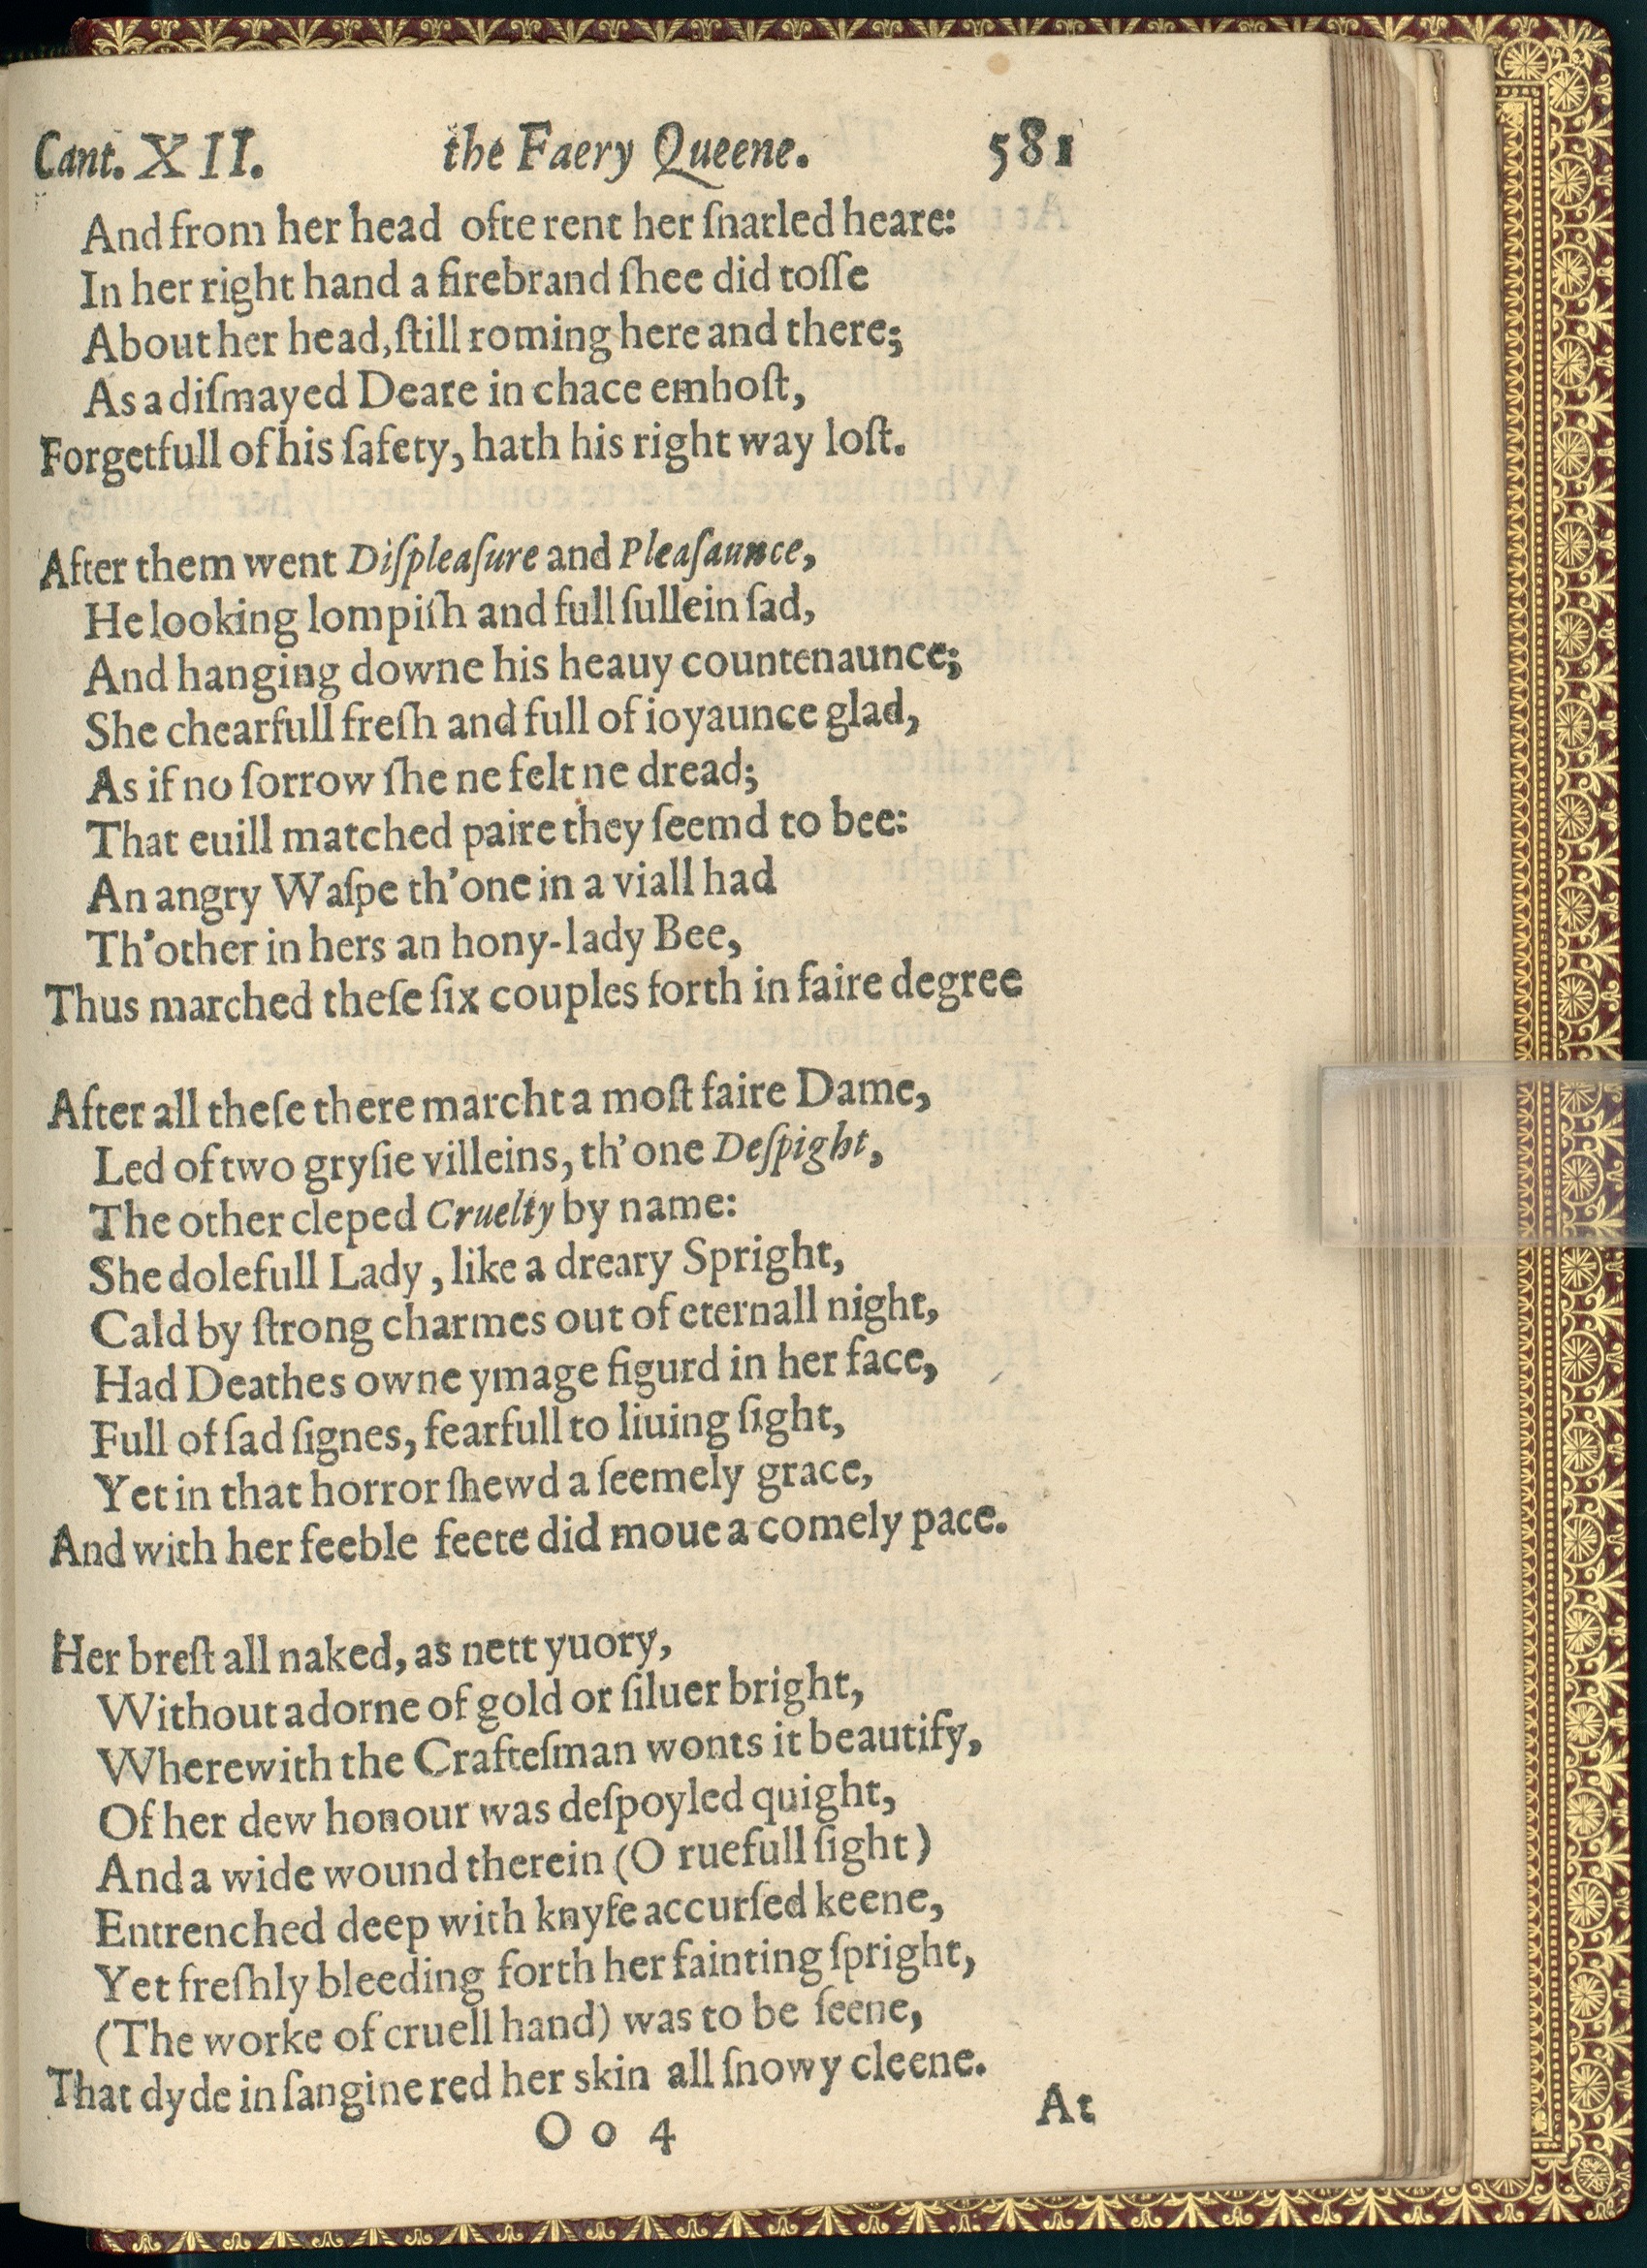 Cant. XII. the Faery Queene. 581
And from her head ofte rent her ſnarled heare:
In her right hand a firebrand ſhee did toſſe
About her head, ſtill roming here and there;
As a diſmayed Deare in chace emboſt,
Forgetfull of his ſafety, hath his right way loſt.
After them went Diſpleaſure and Pleaſaunce,
He looking lompiſh and full ſullein ſad,
And hanging downe his heauy countenaunce;
She chearfull freſh and full of ioyaunce glad,
As if no ſorrow ſhe ne felt ne dread;
That euill matched paire they ſeemd to bee:
An angry Waſpe th'one in a viall had
Th'other in hers an hony-lady Bee,
Thus marched theſe ſix couples forth in faire degree
After all theſe there marcht a moſt faire Dame,
Led of two gryſie villeins, th'one Deſpight,
The other cleped Cruelty by name:
She dolefull Lady, like a dreary Spright,
Cald by ſtrong charmes out of eternall night,
Had Deathes owne ymage figurd in her face,
Full of ſad ſignes, fearfull to liuing ſight,
Yet in that horror ſhewd a ſeemely grace,
And with her feeble feete did moue a comely pace.
Her breſt all naked, as nett yuory,
Without adorne of gold or ſiluer bright,
Wherewith the Crafteſman wonts it beautify,
Of her dew honour was deſpoyled quight,
And a wide wound therein (O ruefull ſight)
Entrenched deep with knyfe accurſed keene,
Yet freſhly bleeding forth her fainting ſpright,
(The worke of cruell hand) was to be ſeene,
That dyde in ſangine red her skin all ſnowy cleene.
O o 4 At